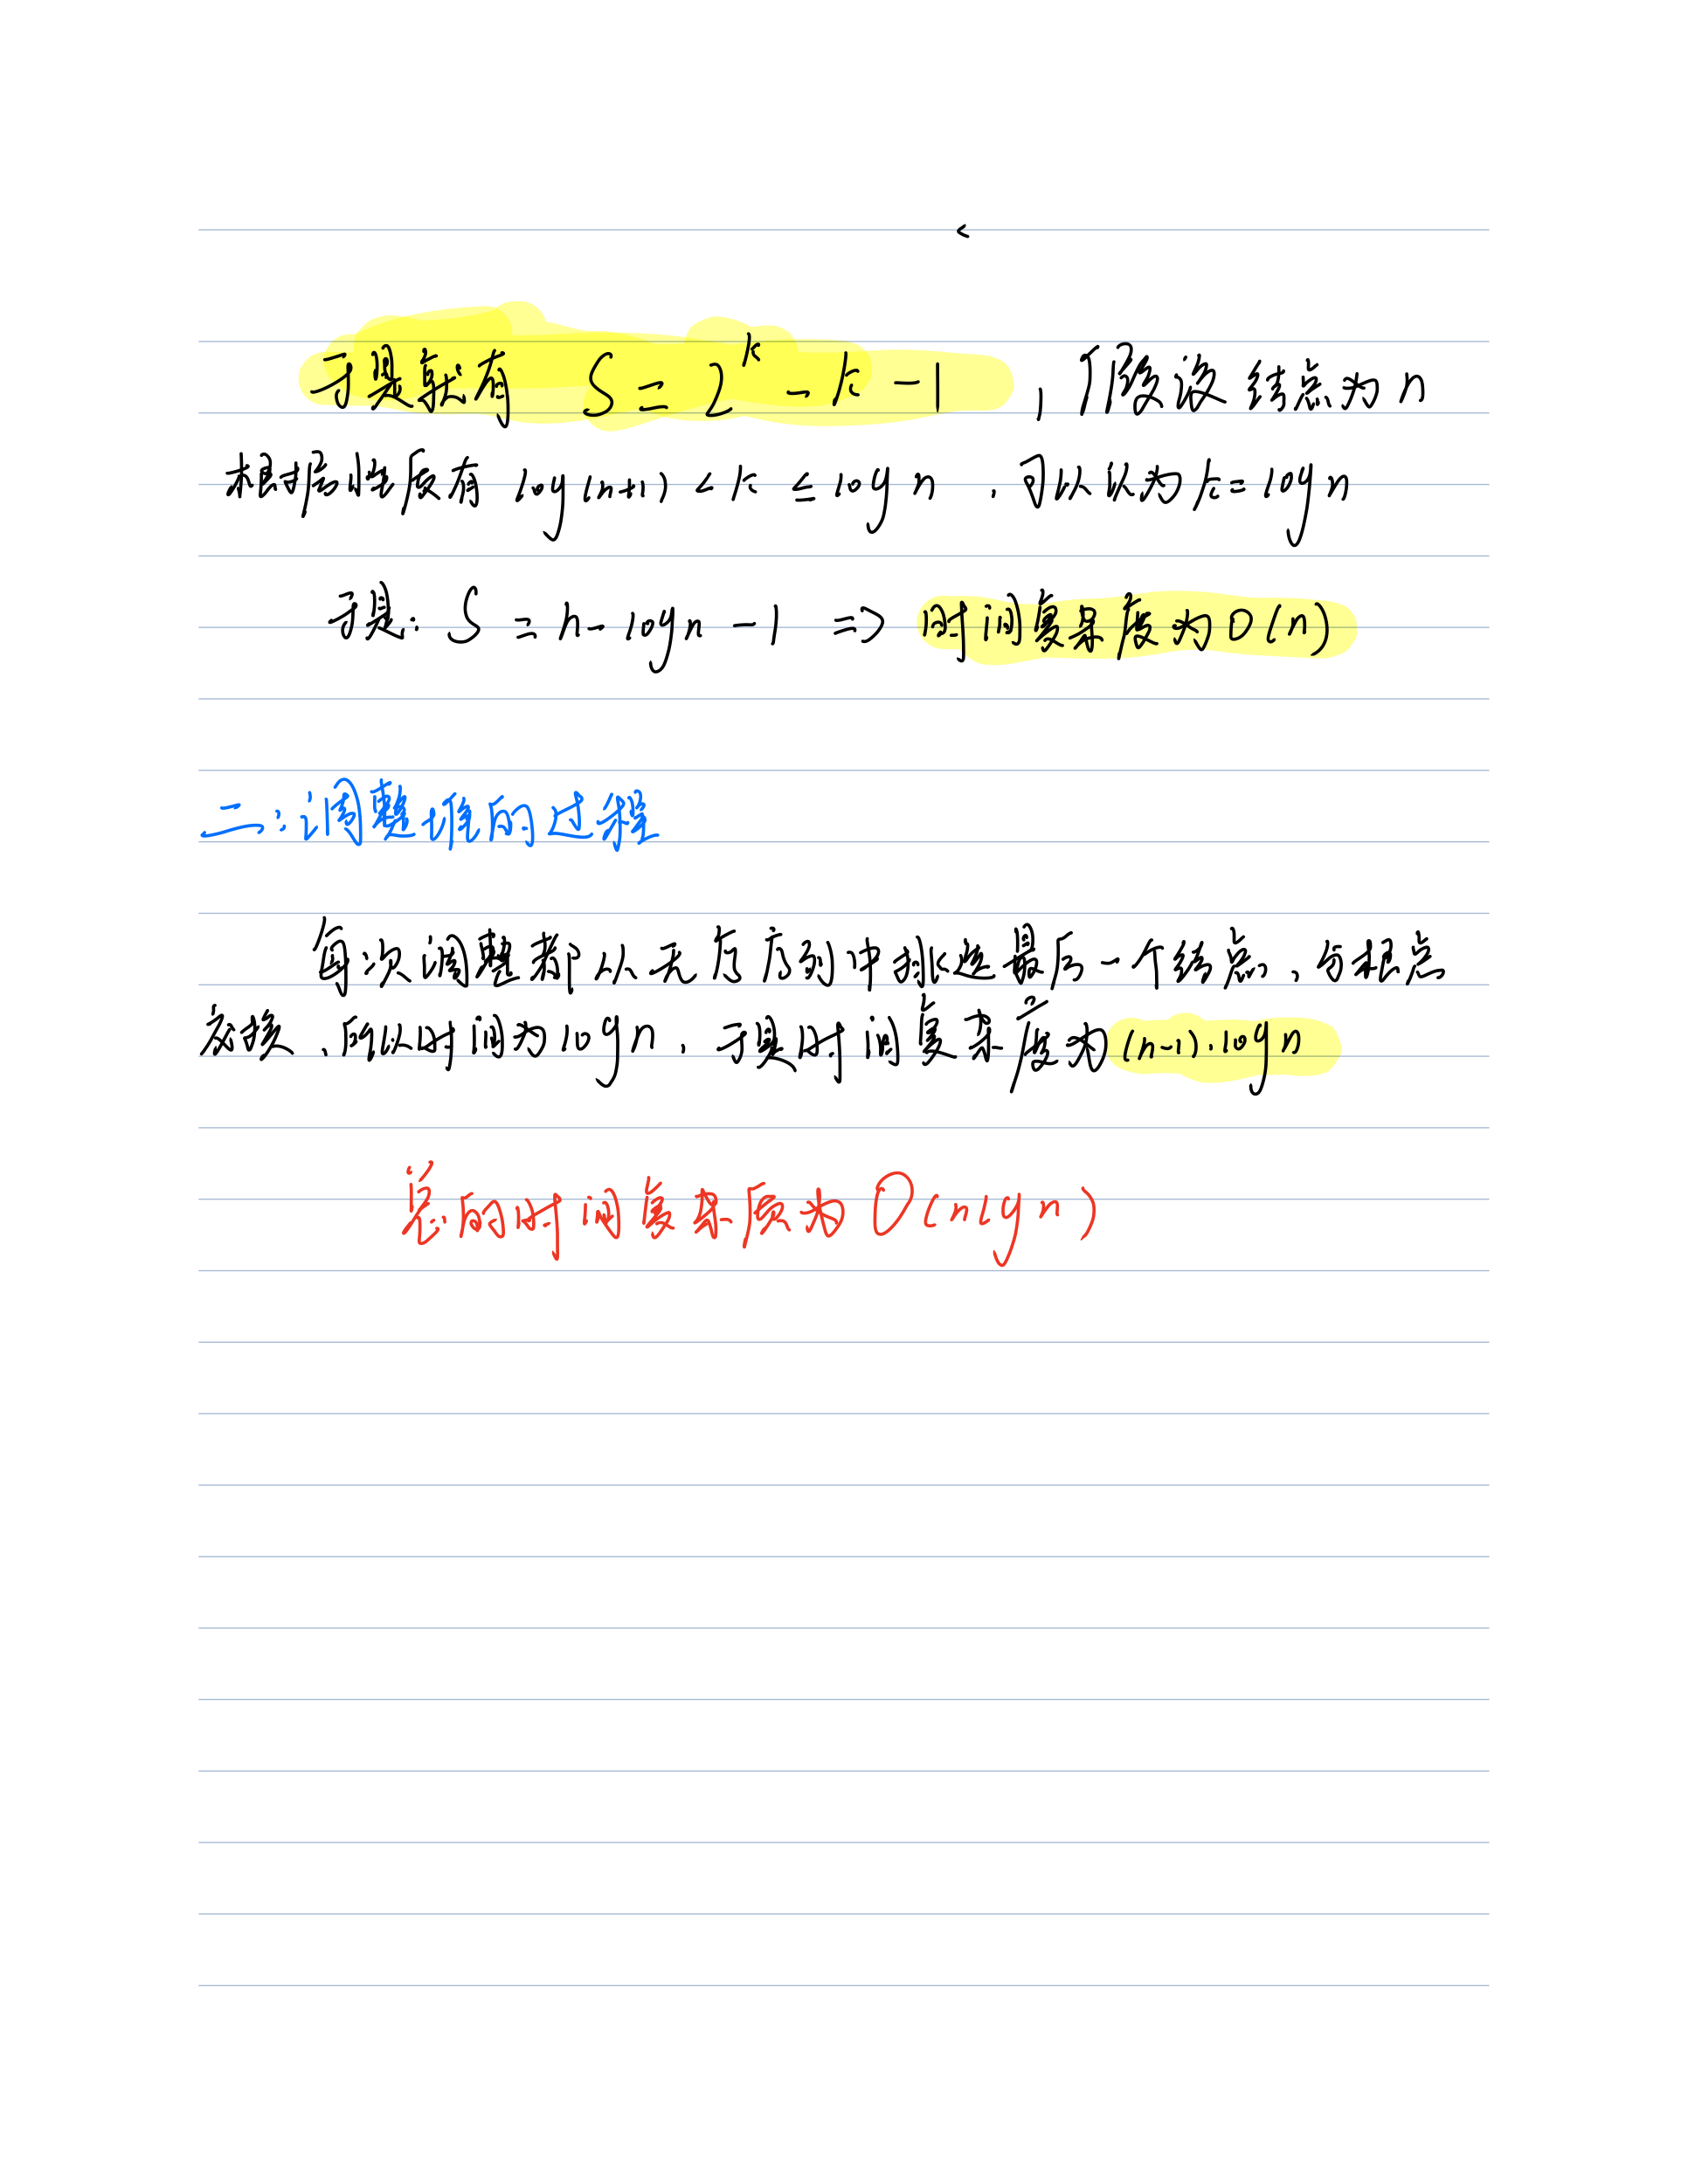 于是就有 S = 2^k - k - 1 ，假设结点为 n
根据性质有 log(n+1) < k ≤ log n ，可以认为 k = log n
于是: S = n - log n - 1 => 时间复杂度为 O(n)
二:调整堆的过程
每次调整都从无序序列中挑选最后一个结点，与根点
交换，所以时间为 log n，于是时间复杂度为 (n-1)·log n
总的时间复杂度为 O(nlgn)